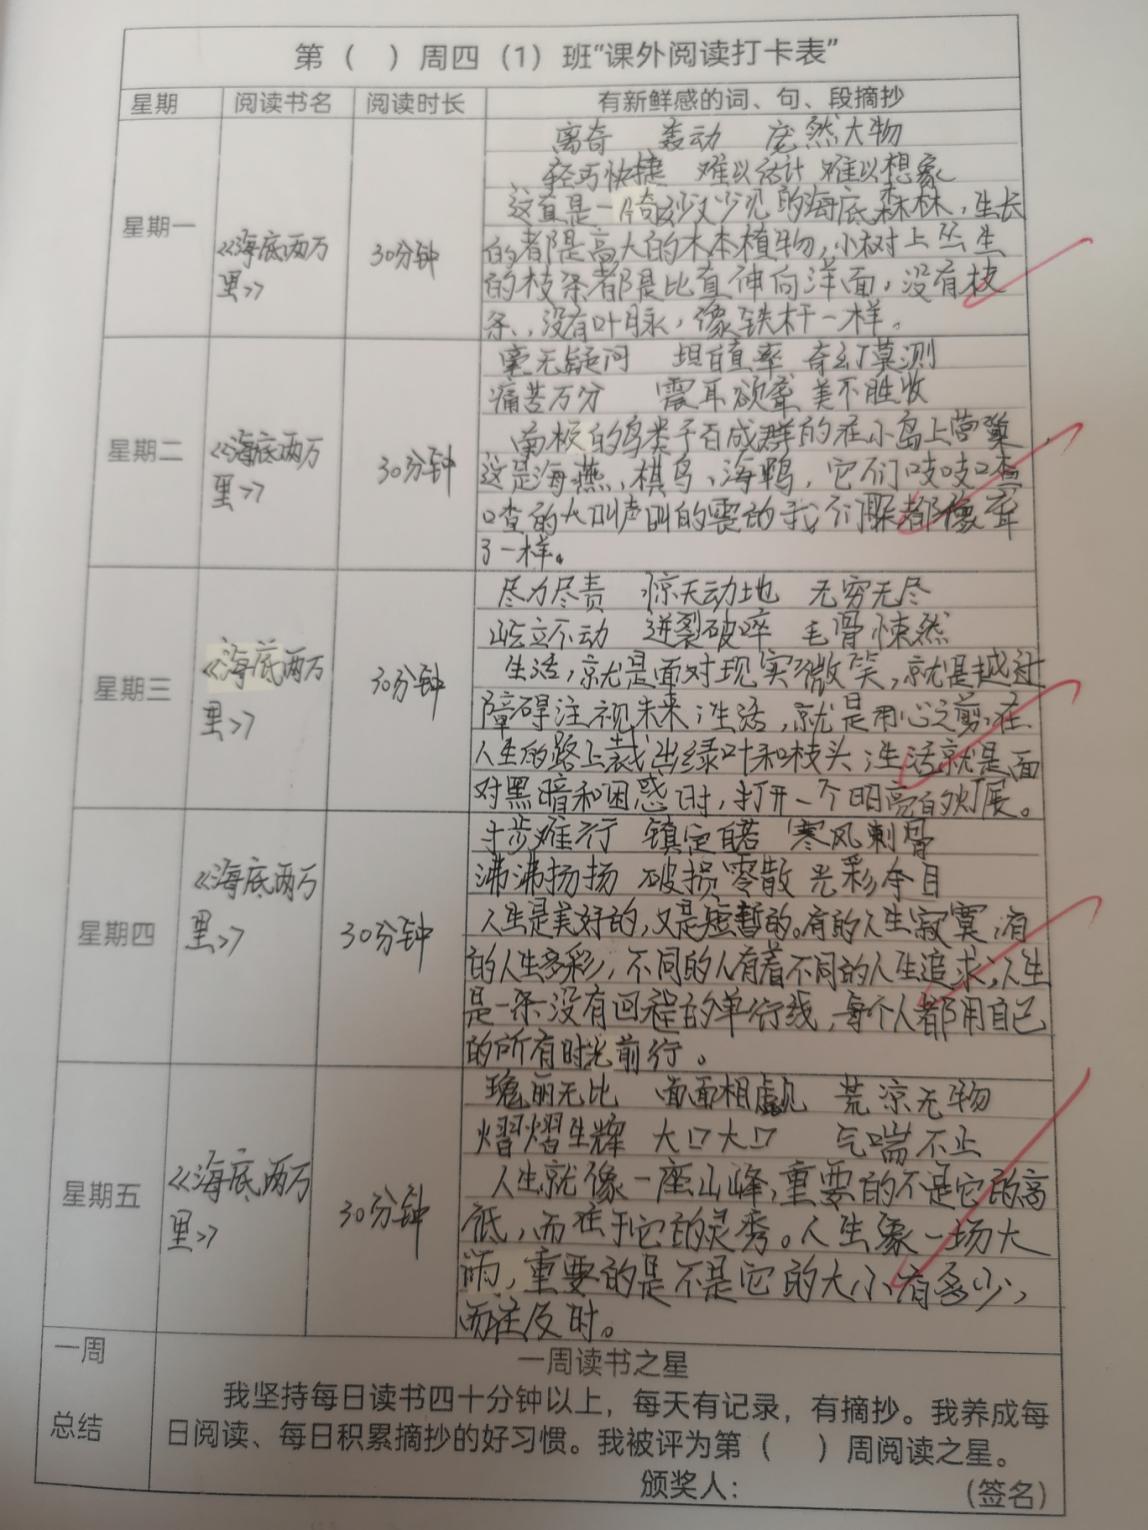 第（ ）周四（1）班“课外阅读打卡表”
星期 阅读书名 阅读时长 有新鲜感的词、句、段摘抄
星期一
《海底两万
里》
30分钟
离奇 轰动 庞然大物
轻巧快捷 难以估计 难以想象
这真是一片奇妙又少见的海底森林，生长
的都是高大的木本植物，小树上丛生
的枝条都是比直伸向洋面，没有枝
条、没有叶脉，像铁杆一样。
星期二
《海底两万
里》
30分钟
毫无疑问 坦白直率 奇幻莫测
痛苦万分 震耳欲聋 美不胜收
南极的鸟类千百成群的在小岛上营巢
这是海燕、棋鸟、海鸭，它们吱吱喳
喳的大叫声叫的震的我们聚都像聋
了一样。
星期三
《海底两万
里》
30分钟
尽力尽责 惊天动地 无穷无尽
屹立不动 迸裂破碎 毛骨悚然
生活，就是面对现实微笑，就是越过
障碍注视未来；生活，就是用心之剪，在
人生的路上裁出绿叶和枝头；生活就是面
对黑暗和困惑时，打开一个明亮的灯展。
星期四
《海底两万
里》
30分钟
寸步难行 镇定自若 寒风刺骨
沸沸扬扬 破损零散 光彩夺目
人生是美好的，又是短暂的。有的人生寂寞，有
的人生多彩，不同的人有着不同的人生追求；人生
是一条没有回程的单行线，每个人都用自己
的所有时光前行。
星期五
《海底两万
里》
30分钟
瑰丽无比 面面相觑 荒凉无物
熠熠生辉 大口大口 气喘不止
人生就像一座山峰，重要的不是它的高
低，而在于它的灵秀。人生象一场大
雨，重要的是不是它的大小有多少，
而在及时。
一周
总结
一周读书之星
我坚持每日读书四十分钟以上，每天有记录，有摘抄。我养成每
日阅读、每日积累摘抄的好习惯。我被评为第（ ）周阅读之星。
颁奖人： （签名）